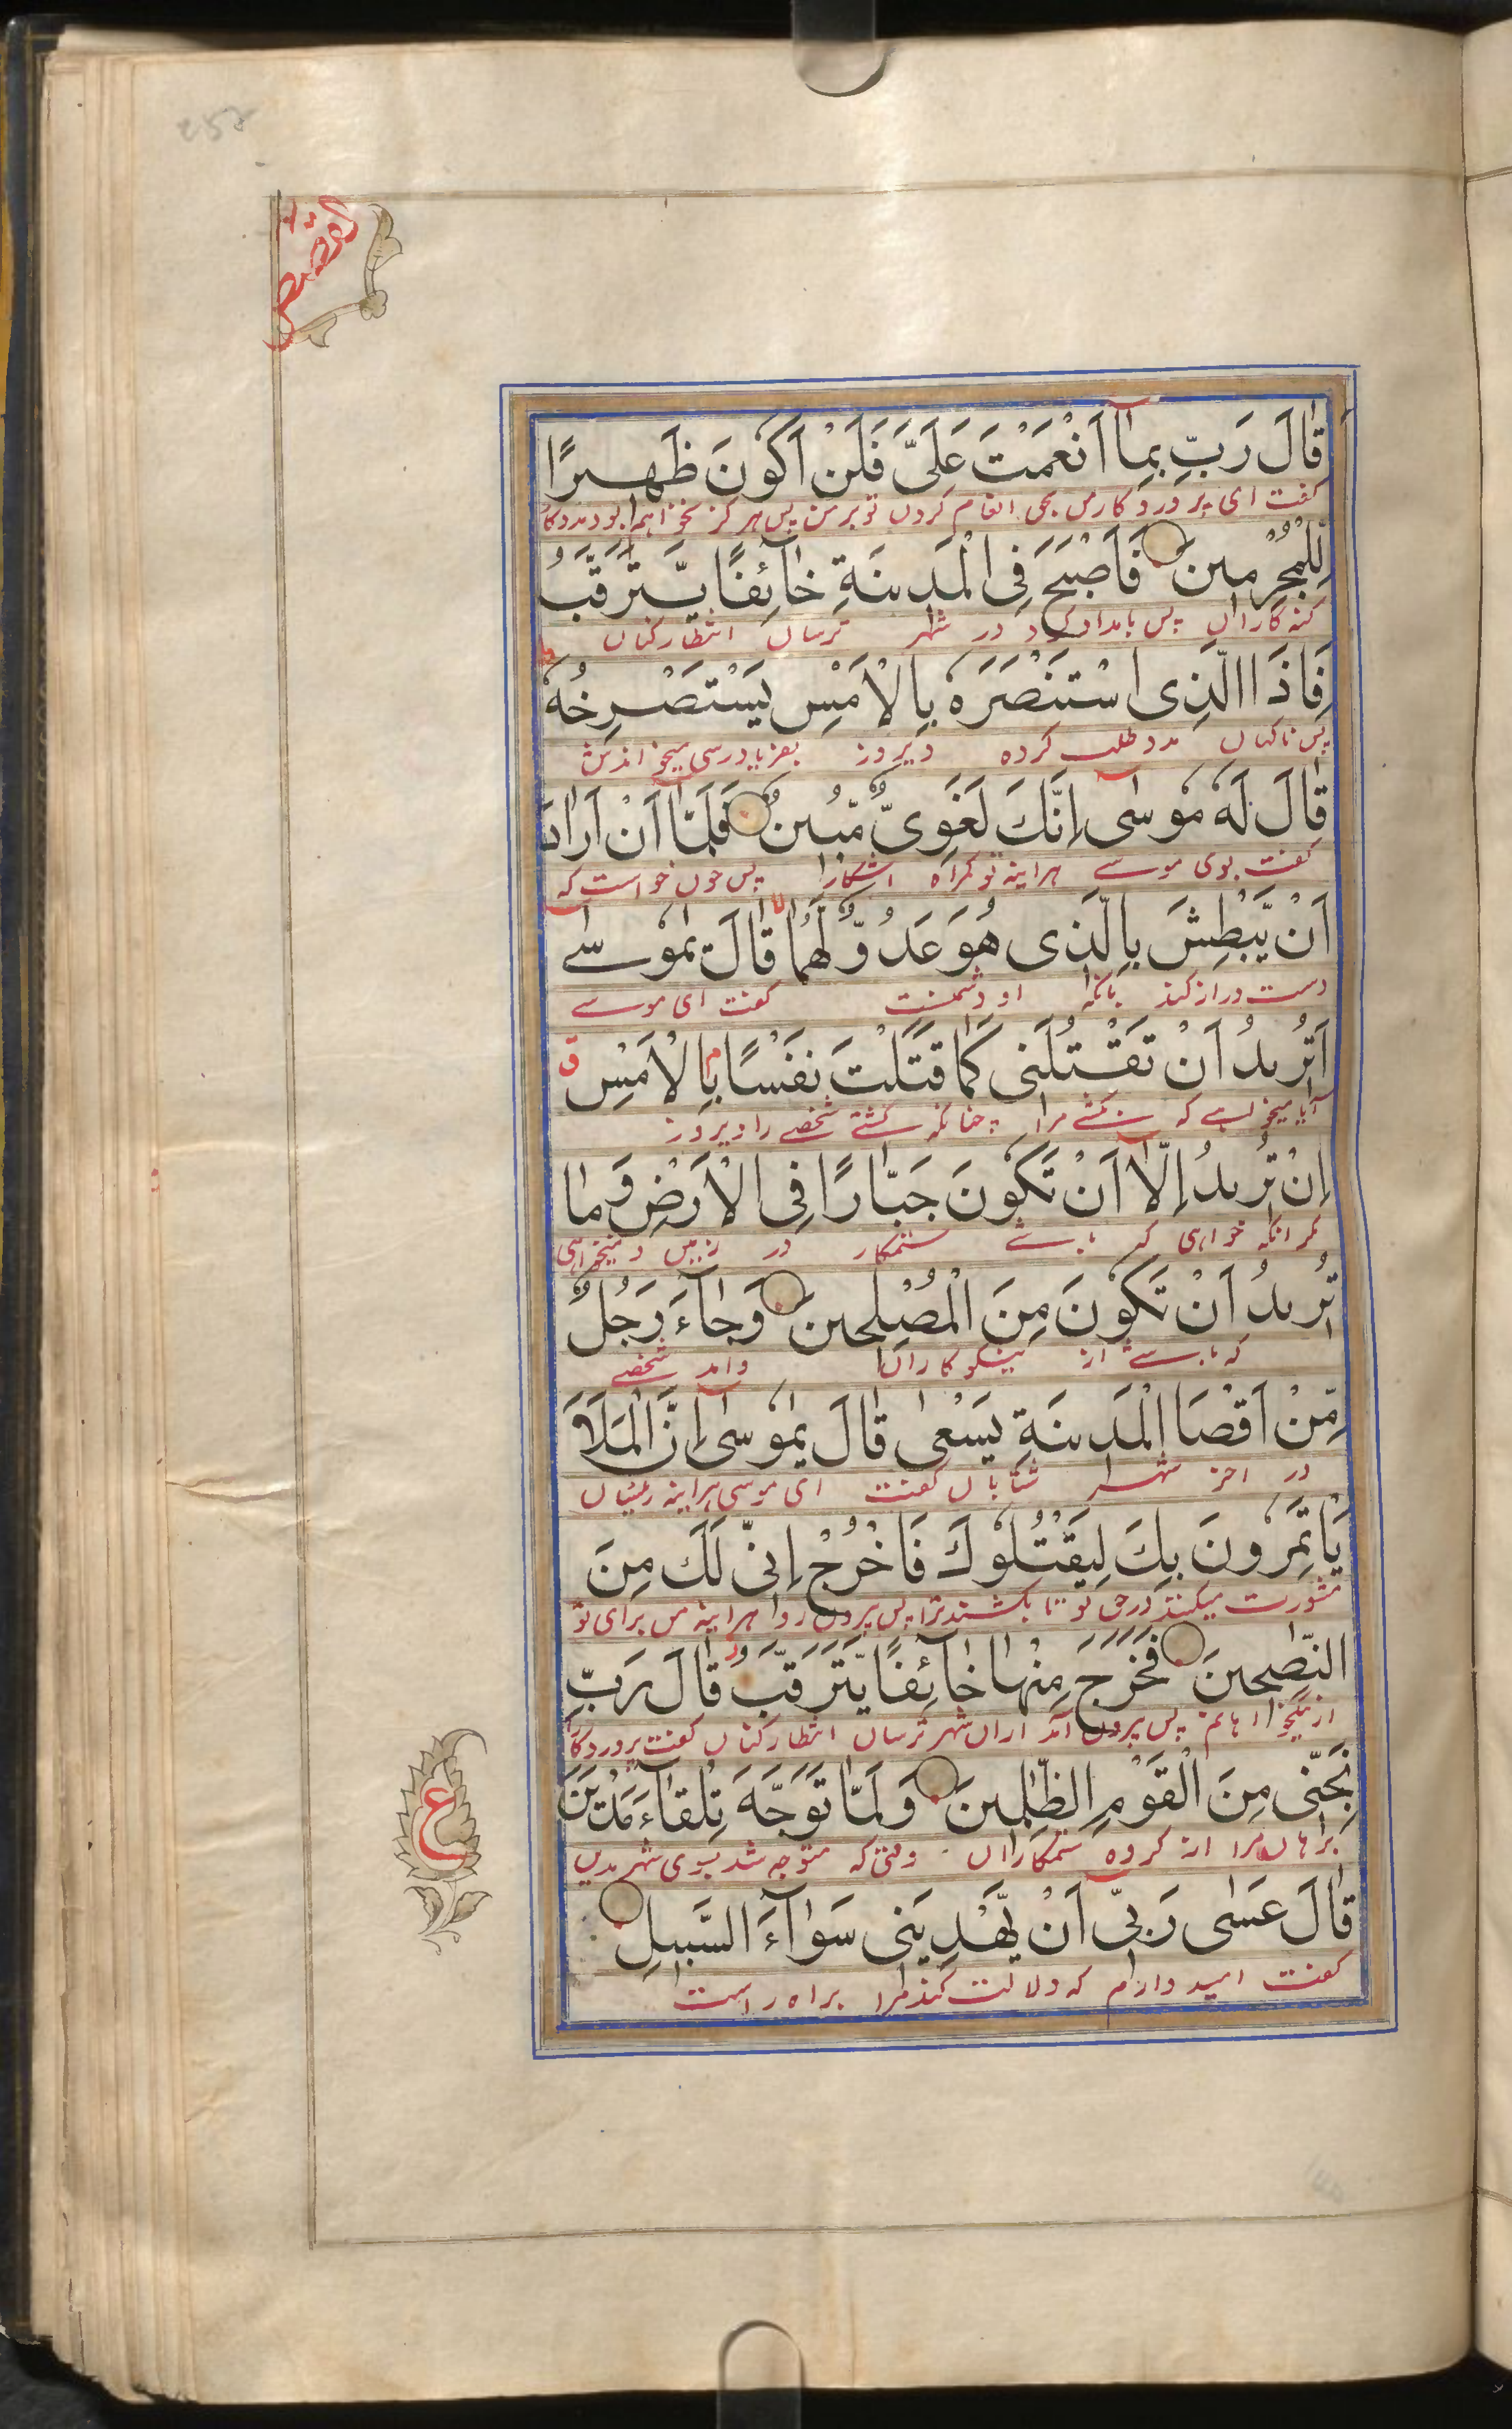 القصص
قَالَ رَبِّ بِمَاۤ اَنْعَمْتَ عَلَیَّ فَلَنْ اَكُوْنَ ظَهِیْرًا
گفت ای پروردگار من بحق انعام کردن تو بر من پس هرگز نخواهم بود مددگار
لِّلْمُجْرِمِیْنَ فَاَصْبَحَ فِی الْمَدِیْنَةِ خَآئِفًا یَّتَرَقَّبُ
گنه کاران پس بامداد کرد در شهر ترسان انتظار کنان
فَاِذَا الَّذِی اسْتَنْصَرَهٗ بِالْاَمْسِ یَسْتَصْرِخُهٗ
پس ناگهان مدد طلب کرده دیروز بفریادرسی میخواندش
قَالَ لَهٗ مُوْسٰۤی اِنَّكَ لَغَوِیٌّ مُّبِیْنٌ فَلَمَّاۤ اَنْ اَرَادَ
گفت بوی موسے هراینه تو گمراه اشکارا پس چون خواست که
اَنْ یَّبْطِشَ بِالَّذِیْ هُوَ عَدُوٌّ لَّهُمَا قَالَ یٰمُوْسٰۤے
دست دراز کند بانکه او دشمنست گفت ای موسے
اَتُرِیْدُ اَنْ تَقْتُلَنِیْ كَمَا قَتَلْتَ نَفْسًا بِالْاَمْسِ ق
آیا میخواہے که بکشے مرا چنانکه کشتے شخصے را دیروز
اِنْ تُرِیْدُ اِلَّاۤ اَنْ تَكُوْنَ جَبَّارًا فِی الْاَرْضِ وَمَا
مگر انکه خواهی که باشے ستمکار در زمین و نمیخواهی
تُرِیْدُ اَنْ تَكُوْنَ مِنَ الْمُصْلِحِیْنَ وَجَآءَ رَجُلٌ
که باشے از نیکوکاران وامد شخصے
مِّنْ اَقْصَا الْمَدِیْنَةِ یَسْعٰی قَالَ یٰمُوْسٰۤی اِنَّ الْمَلَاَ
در اخر شهر شتابان گفت ای موسی هراینه رئیسان
یَاْتَمِرُوْنَ بِكَ لِیَقْتُلُوْكَ فَاخْرُجْ اِنِّیْ لَكَ مِنَ
مشورت میکنند در حق تو تا بکشند ترا پس بیرون رو هراینه من برای تو
النّٰصِحِیْنَ فَخَرَجَ مِنْهَا خَآئِفًا یَّتَرَقَّبُ قَالَ رَبِّ
از نیکخواهانم پس بیرون آمد ازان شهر ترسان انتظار کنان گفت پروردگارا
نَجِّنِیْ مِنَ الْقَوْمِ الظّٰلِمِیْنَ وَلَمَّا تَوَجَّهَ تِلْقَآءَ مَدْیَنَ
برهان مرا از گروه ستمکاران وقتی که متوجه شد بسوی شهر مدین
ع
قَالَ عَسٰی رَبِّیْۤ اَنْ یَّهْدِیَنِیْ سَوَآءَ السَّبِیْلِ
گفت امید دارم که دلالت کند مرا براه راست